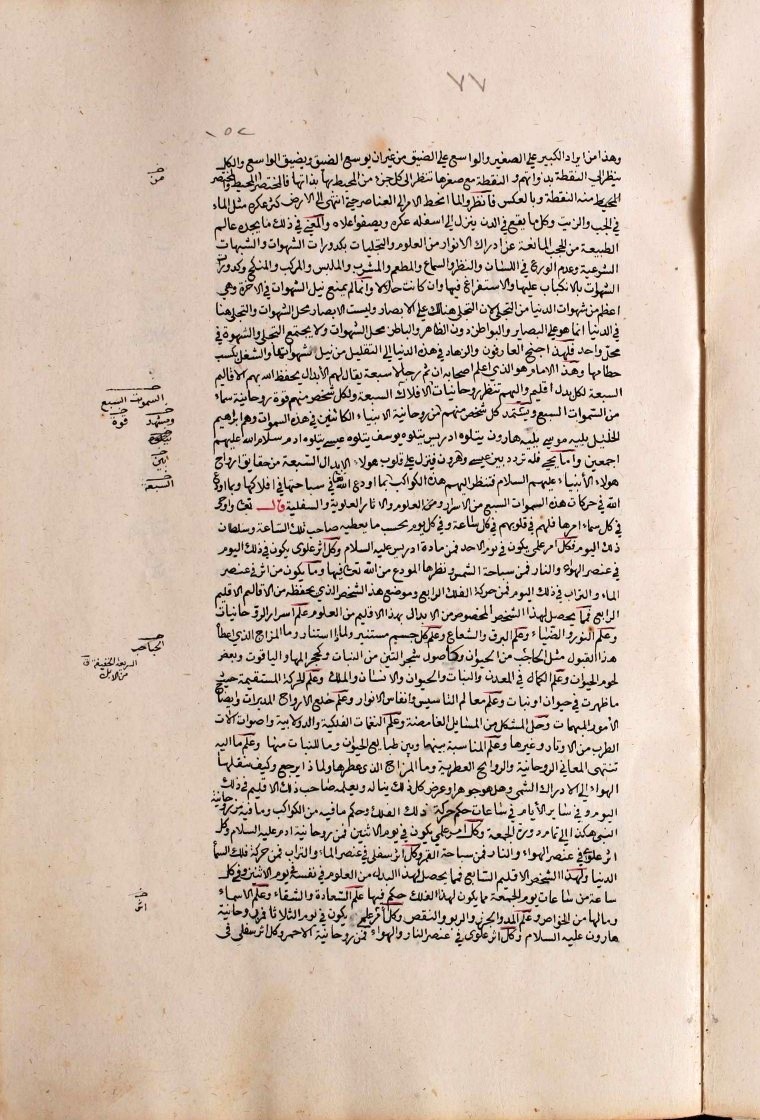 ٧٧
١٥٢
وهذا من ايراد الكبير على الصغير والواسع على الضيق من غير ان يوسع الضيق ويضيق الواسع والكل
ينظر الى النقطة بذواتهم والنقطة مع صغرها تنظر الى كل جزء من المحيط بها بذاتها فالمختصر المحيط والمختصر
المحيط منه النقطة وبالعكس فانظر ولما انحط الامر الى العناصر حتى انتهى الى الارض كثر عكره مثل الماء
في الحب والزيت وكل مايع في الدن ينزل الى اسفله عكره ويصفو اعلاه والمعنى في ذلك ما يجده عالم
الطبيعة من الحجب المانعة عن ادراك الانوار من العلوم والتجليات بكدورات الشهوات والشبهات
الشرعية وعدم الورع في اللسان والنظر والسماع والمطعم والمشرب والملبس والمركب والمنكح وكدورات
الشهوات بالانكباب عليها والاستفراغ فيها وان كانت حلالا وانما لم يمنع نيل الشهوات في الاخرة وهي
اعظم من شهوات الدنيا من التجلي لان التجلي هناك على الابصار وليست الابصار محل الشهوات والتجلي هنا
في الدنيا انما هو على البصاير والبواطن دون الظاهر والباطن محل الشهوات ولا يجتمع التجلي والشهوة في
محل واحد فلهذا اجنح العارفون والزهاد في هذه الدنيا الى التقليل من نيل شهواتها والشغل بكسب
حطامها وهذا الامام هو الذي اعلم اصحابه ان ثم رجالا سبعة يقال لهم الابدال يحفظ الله بهم الاقاليم
السبعة لكل بدل اقليم واليهم تنظر روحانيات الافلاك السبعة ولكل شخص منهم قوة روحانية سماء
من السموات السبع ويستمد كل شخص منهم من روحانية الانبياء الكائنين في هذه السموات وهم ابراهيم
الخليل يليه موسى يليه هارون يتلوه ادريس يتلوه يوسف يتلوه عيسى يتلوه ادم سلام الله عليهم
اجمعين واما يحيى فله تردد بين عيسى وهرون فينزل على قلوب هولاء الابدال السبعة من حقايق ارواح
هولاء الانبياء عليهم السلام فتنظر اليهم هذه الكواكب بما اودع الله تعالى في سباحتها في افلاكها وبما اودع
الله في حركات هذه السموات السبع من الاسرار ومن العلوم والاثار العلوية والسفلية قال تعالى واوحى
في كل سماء امرها فلهم في قلوبهم في كل ساعة وفي كل يوم بحسب ما يعطيه صاحب تلك الساعة وسلطان
ذلك اليوم فكل امر علمي يكون في يوم الاحد فمن مادة ادريس عليه السلام وكل اثر علوي يكون في ذلك اليوم
في عنصر الهواء والنار فمن سباحة الشمس ونظرها المودع من الله تعالى فيها وما يكون من اثر في عنصر
الماء والتراب في ذلك اليوم فمن حركة الفلك الرابع وموضع هذا الشخص الذي يحفظه من الاقاليم الاقليم
الرابع فما يحصل لهذا الشخص المخصوص من الابدال بهذا الاقليم من العلوم علم اسرار الروحانيات
وعلم النور والضياء وعلم البرق والشعاع وعلم كل جسم مستنير ولماذا استنار وما المزاج الذي اعطاه
هذا القبول مثل الحاجب من الحيوان وكاصول شجر التين من النبات وكحجر المها والياقوت وبعض
لحوم الحيوان وعلم الكمال في المعدن والنبات والحيوان والانسان والملك وعلم الحركة المستقيمة حيث
ما ظهرت في حيوان او نبات وعلم معالم التاسيس وانفاس الانوار وعلم خلع الارواح المدبرات وايضاح
الامور المبهمات وحل المشكل من المسايل الغامضة وعلم النغمات الفلكية والدولابية واصوات الات
الطرب من الاوتار وغيرها وعلم المناسبة بينها وبين طبايع الحيوان وما للنبات منها وعلم ما اليه
تنتهي المعاني الروحانية والروايح العطرية وما المزاج الذي عطرها ولماذا يرجع وكيف ينقلها
الهواء الى الادراك الشمي وهل هو جوهر او عرض كل ذلك يناله ويعلمه صاحب ذلك الاقليم في ذلك
اليوم وفي ساير الايام في ساعات حكم حركة ذلك الفلك وحكم ما فيه من الكواكب وما فيه من روحانية
النبي هكذا الى تمام دورة الجمعة وكل امر علمي يكون في يوم الاثنين فمن روحانية ادم عليه السلام وكل
اثر علوي في عنصر الهواء والنار فمن سباحة القمر وكل اثر سفلي في عنصر الماء والتراب فمن حركة فلك السماء
الدنيا ولهذا الشخص الاقليم السابع فما يحصل لهذا البدل من العلوم في نفسه في يوم الاثنين وفي كل
ساعة من ساعات يوم الجمعة مما يكون لهذا الفلك حكم فيها علم السعادة والشقاء وعلم الاسماء
وما لها من الخواص وعلم المد والجزر والربو والنقص وكل اثر علمي يكون في يوم الثلاثا فمن روحانية
هارون عليه السلام وكل اثر علوي في عنصر النار والهواء فمن روحانية الاحمر وكل اثر سفلي في
من
السموات السبع
قوة
ويشهد
السبعة
الحباحب
اثر